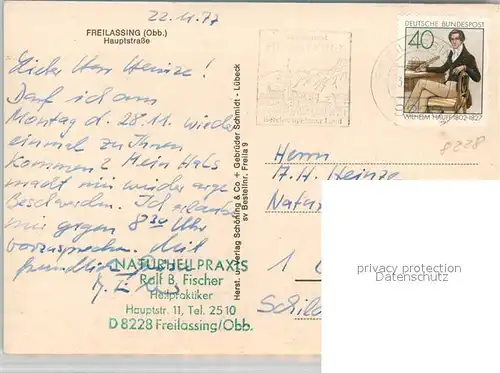 22.11.77
FREILASSING (Obb.)
Hauptstraße
Lieber Herr Heinze!
Darf ich am
Montag d. 28.11. wieder
einmal zu Ihnen
kommen? Mein Hals
macht mir wieder arge
Beschwerden. Ich erlaube
mir gegen 8 30 Uhr
vorzusprechen. Mit
freundlichen
NATURHEILPRAXIS
Ralf B. Fischer
Heilpraktiker
Hauptstr. 11, Tel. 2510
D 8228 Freilassing/Obb.
Herst. u. Verlag Schöning & Co + Gebrüder Schmidt - Lübeck
sv Bestellnr. Freila 9
DEUTSCHE BUNDESPOST
40
WILHELM HAUFF 1802-1827
8228
Herrn
A. H. Heinze
Natur
1
Schil
protection watermark
Copyright protected